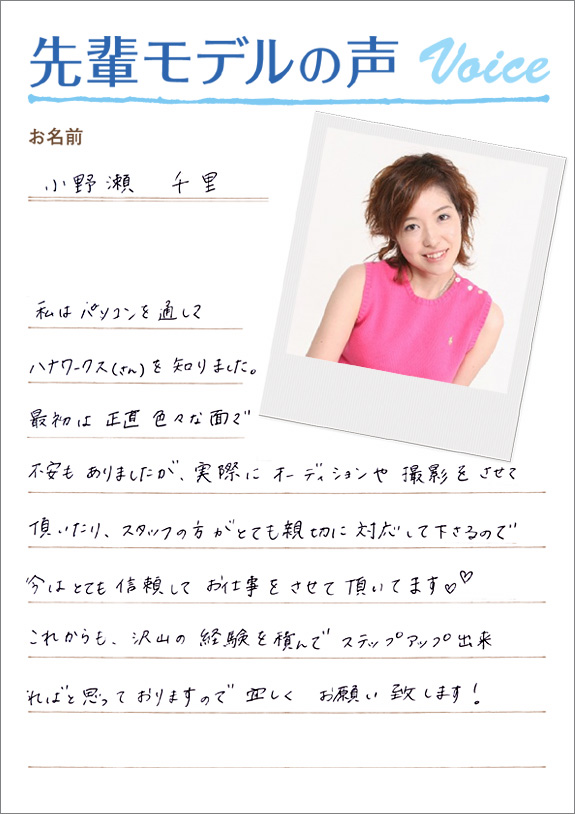 先輩モデルの声 Voice
お名前
小野瀬 千里
私はパソコンを通して
ハナワークス(さん)を知りました。
最初は正直色々な面で
不安もありましたが、実際にオーディションや撮影をさせて
頂いたり、スタッフの方がとても親切に対応して下さるので
今はとても信頼してお仕事をさせて頂いてます♡♡
これからも、沢山の経験を積んでステップアップ出来
ればと思っておりますので宜しくお願い致します!